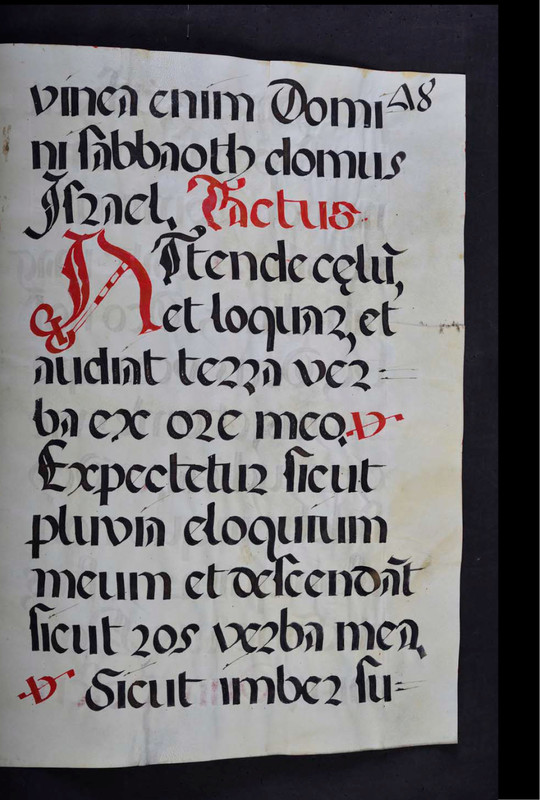 vinea enim Domi 48
ni sabbaoth domus
Israel. Tactus
ATtende cęlũ,
et loquar, et
audiat terra ver=
ba ex ore meo. V
Expectetur sicut
pluvia eloquium
meum et descendãt
sicut ros verba mea,
V Sicut imber su=